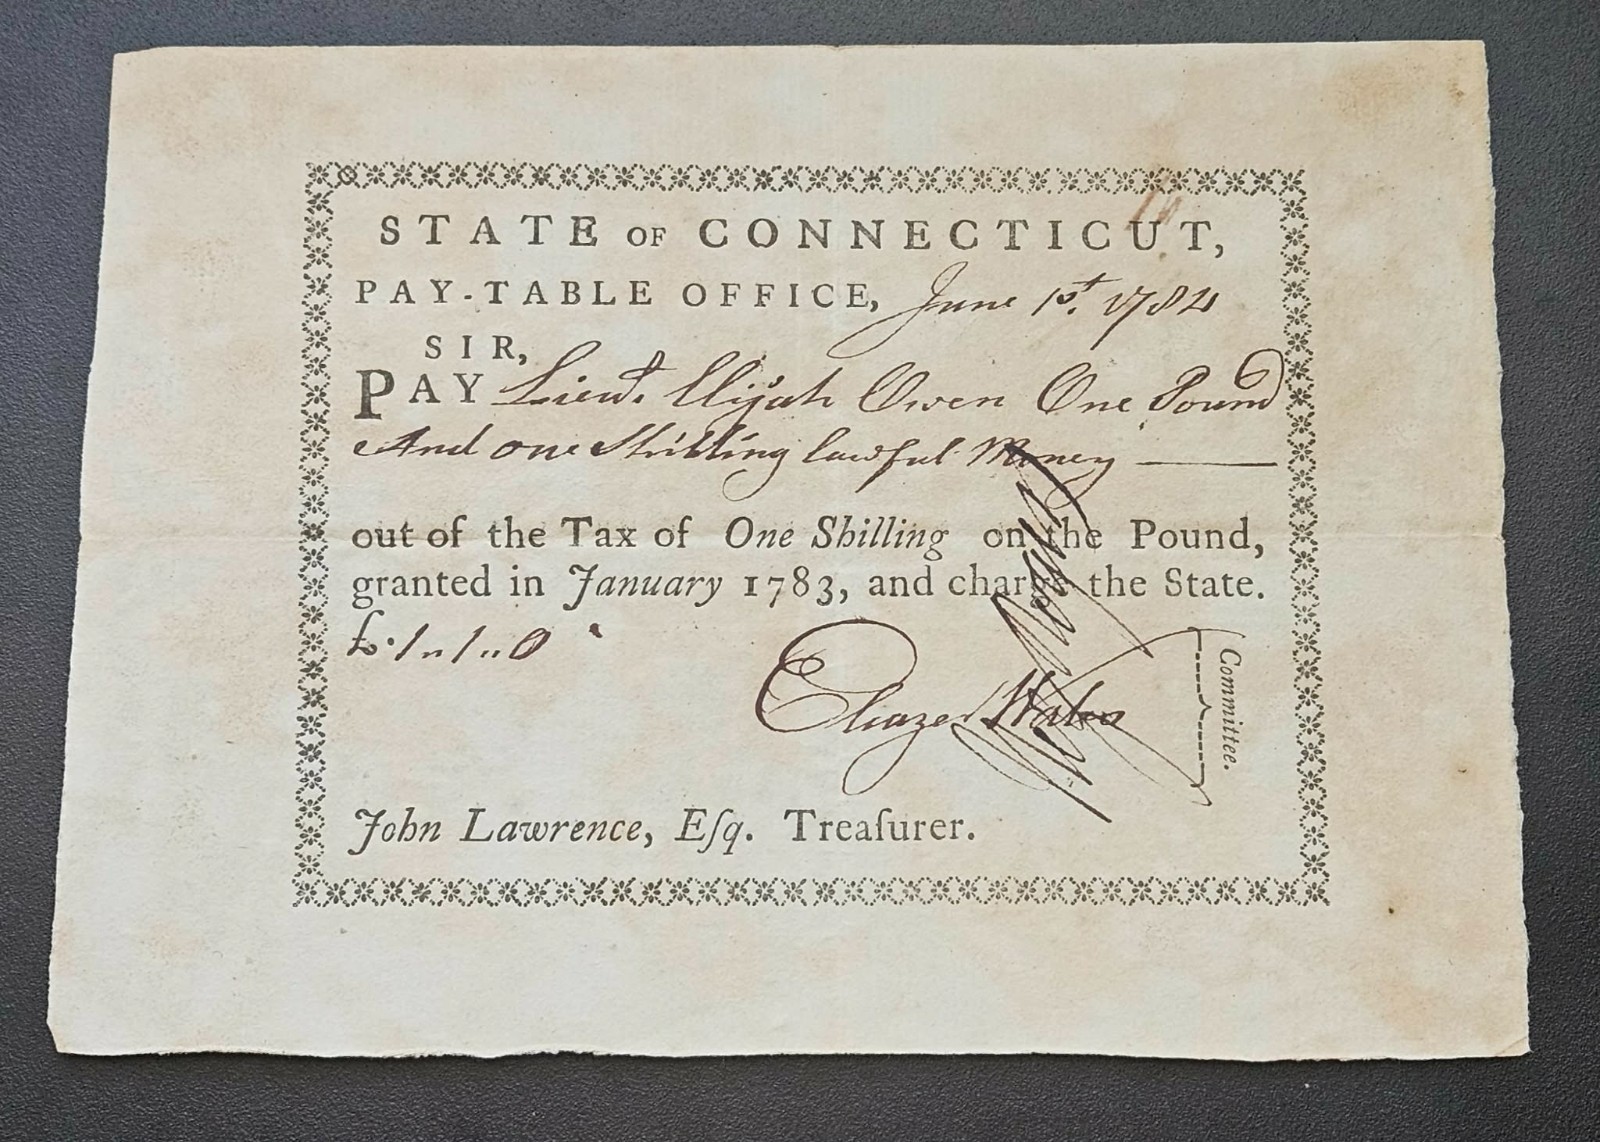 STATE OF CONNECTICUT,
PAY-TABLE OFFICE, June 1st. 1784
SIR,
PAY Lieut. Elijah Owen One Pound
And one Shilling lawful Money
out of the Tax of One Shilling on the Pound,
granted in January 1783, and charge the State.
£.1,,1,,0
Eleazer Wales
Committee.
John Lawrence, Eſq. Treaſurer.